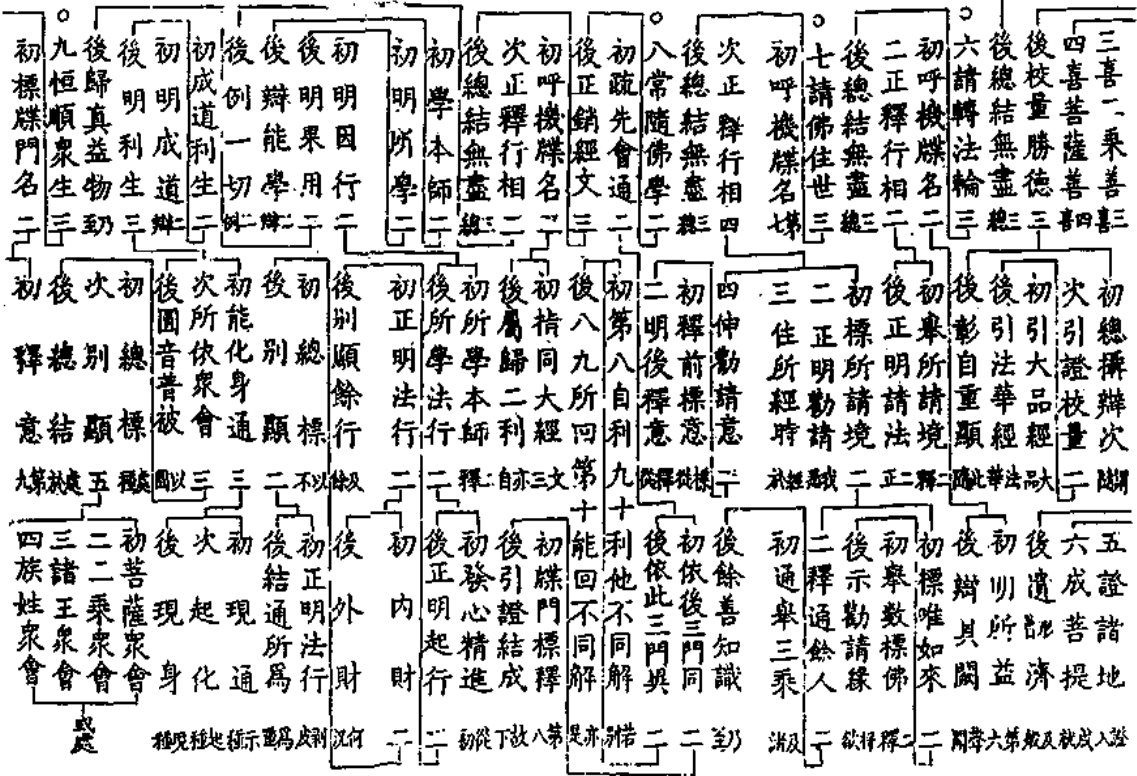 三喜二乘善 三喜
四喜菩薩善 四喜
後校量勝德 三
後總結無盡 三總
○六請轉法輪 三
初呼機牒名 二
二正釋行相 二
後總結無盡 三總
○七請佛住世 三
初呼機牒名 第七
次正釋行相 四
後總結無盡 三總
○八常隨佛學 二
初疏先會通 二
後正銷經文 三
初呼機牒名 二
次正釋行相 二
後總結無盡 三總
初學本師 二
初明所學 二
初明因行 二
後明果用 二
後辯能學 二辯
後例一切 二例
初成道利生 二
初明成道 二辯
後明利生 三
後歸真益物 乃至
○九恒順眾生 三
初標牒門名 二
初總攝辦次 謂隨
次引證校量 二
初引大品經 大品
後引法華經 法華
後彰自重顯
初舉所請境 二釋
後正明請法 二正
初標所請境 二
二正明勸請 我悉
三住所經時 經於
四伸勸請意 二
初釋前標意 標從
二明後釋意 釋從
初第八自利九十利他不同解 若別
後八九所回第十能回不同解 亦是
初指同大經 文三
後屬歸二利 亦自
初所學本師 二釋
後所學法行 二
初正明法行 二
後別顯餘行 及餘
初總標 以不
後別顯 二
初能化身通 三
次所依眾會 三
後圓音普被 以圓
初總標 處種
次別顯 五
後總結 處於
初釋意 第九
五證諸地 證入
六成菩提 成就
後濟 及般
初所益 第六
後辯其闕 聲聞
初標唯如來 二
初舉數標佛 二釋
後示勸請緣 將欲
二釋通餘人 二
初通舉三乘 及諸
後餘善知識 乃至
初依後三門同 二
後依此三門異 二
初牒門標釋 第八
後引證結成 故下
初發心精進 初從
後正明起行 二
初內財 二
後外財 何況
初正明法行 剝皮
後結通所為 為重
初現通 示種
次起化 起種
後現身 現種
初菩薩眾會
二二乘眾會
三諸王眾會
四族姓眾會
或處